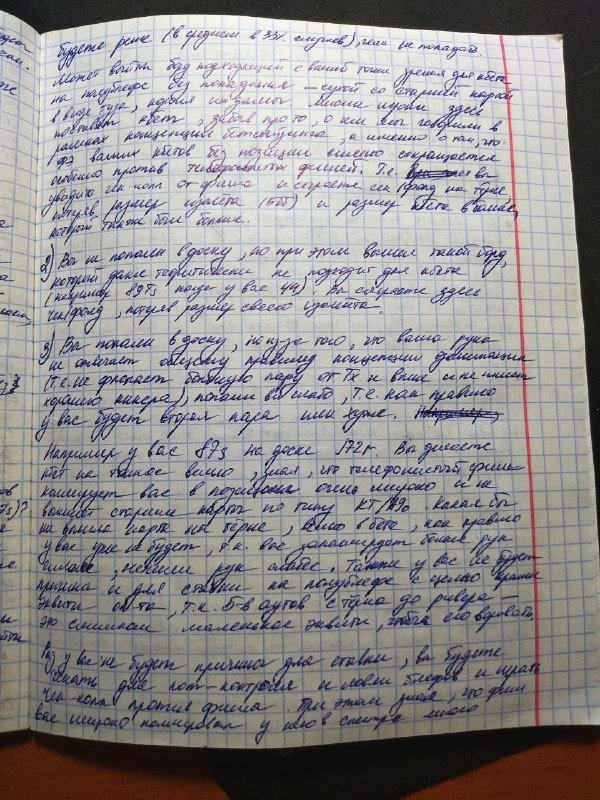 будете реже (в среднем в 33% случаев), чем не попадать.
Может выйти борд подходящий с вашей точки зрения для кбета
на полублефе без попадания — сухой со старшей картой
в виде туза, короля и т.д. мы можем здесь
поставить кбет, забыв про то, о чем мы говорили в
рамках концепции бетсайзинга, а именно о том, что
фэ ваших кбетов без позиции сильно сокращается
особенно против телефонистых фишей. Т.е. вы
увидите чек-колл от фиша и сыграете чек/фолд на терне
потеряв размер изолейта (5бб) и размер кбета в банке,
который также был больше.
2) Вы не попали в доску, но при этом вышел такой борд,
который даже теоретически не подходит для кбета
(например 89Ts когда у вас 44). Вы сыграете здесь
чек/фолд, потеряв размер своего изолейта.
3) Вы попали в доску, но из-за того, что ваша рука
не отвечает общему правилу концепции доминации
(т.е. не флопает большую пару от Тх и выше и не имеет
хорошего кикера), попали вы слабо, т.е. как правило
у вас будет вторая пара или хуже.
Например у вас 87s на доске J72r. Вы делаете
кбет на тонкое вэлью, зная, что телефонистый фиш
коллирует вас в позиции очень широко и не
выкинет старшие карты по типу KT/A9o. Какая бы
ни вышла карта на терне, вэлью в бете, как правило
у вас уже не будет, т.к. вас заколлирует больше рук
сильнее, нежели рук слабее. Также у вас не будет
причины и для ставки на полублефе с целью кражи
эквити оппа, т.к. 5-в аутов с терна до ривера —
это слишком маленькое эквити, чтобы его воровать.
у вас не будет причины для ставки, вы будете
чекать для пот-контроля и ловли блефов и играть
чек-колл против фиша. При этом зная, что фиш
вас широко коллировал у него в спектре много